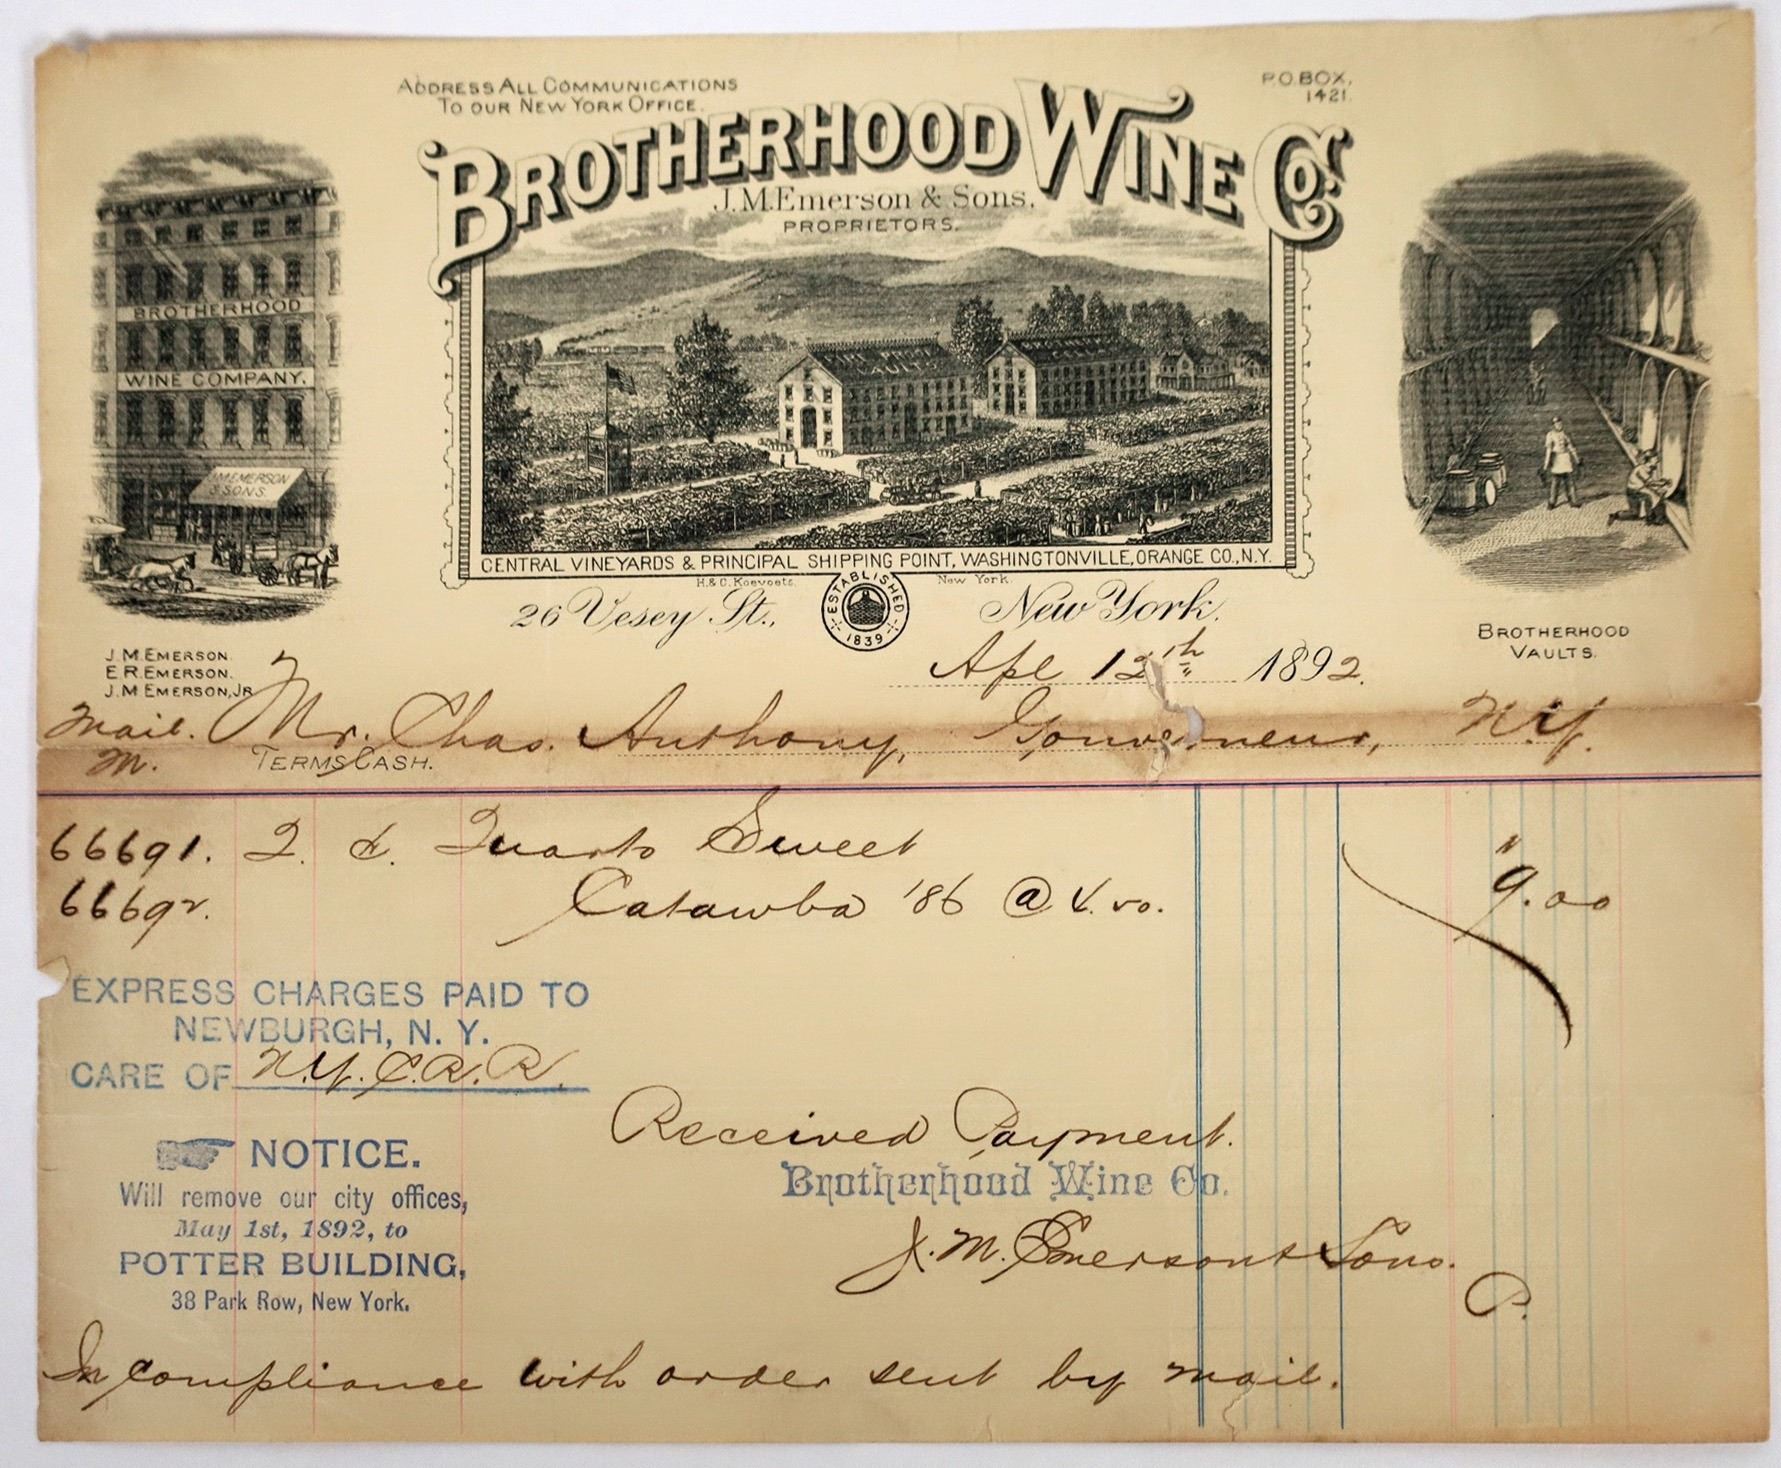 ADDRESS ALL COMMUNICATIONS
TO OUR NEW YORK OFFICE.
P.O. BOX,
1421.
BROTHERHOOD WINE CO.
J.M. Emerson & Sons,
PROPRIETORS.
BROTHERHOOD
WINE COMPANY.
J.M. EMERSON
& SONS.
VAULTS
CENTRAL VINEYARDS & PRINCIPAL SHIPPING POINT, WASHINGTONVILLE, ORANGE CO., N.Y.
H.& C. Koevoets. New York.
ESTABLISHED
1839
26 Vesey St., New York.
BROTHERHOOD
VAULTS.
J.M. EMERSON.
E.R. EMERSON.
J.M EMERSON, JR
Apl 12th 1892.
Mail. Mr. Chas. Anthony, Gouverneur, N.Y.
M. TERMS CASH.
66691. 2. C. Quarts Sweet
66692. Catawba '86 @ 4.50. 9.00
EXPRESS CHARGES PAID TO
NEWBURGH, N. Y.
CARE OF N.Y.C.R.R.
Received Payment.
Brotherhood Wine Co.
J. M. Emerson & Sons.
P.
NOTICE.
Will remove our city offices,
May 1st, 1892, to
POTTER BUILDING,
38 Park Row, New York.
In compliance with order sent by mail.